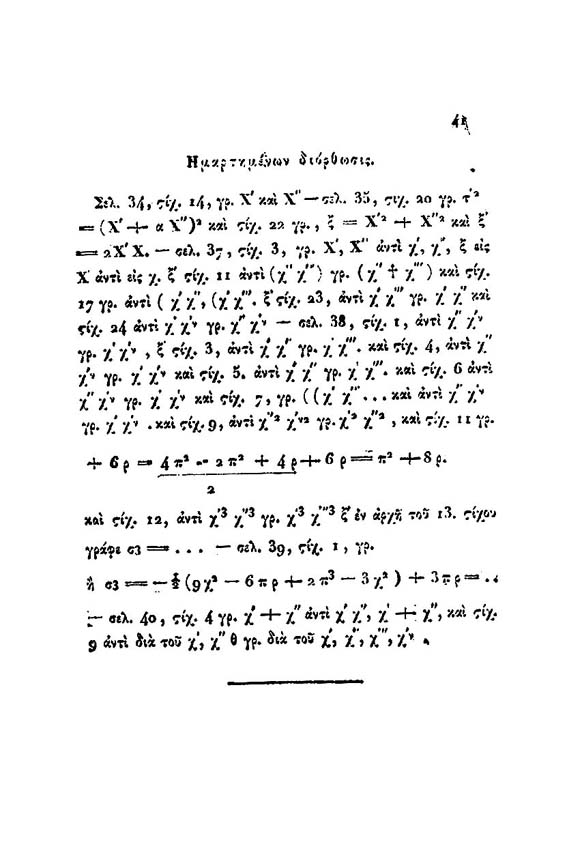 41
Ημαρτημένων διόρθωσις.
Σελ. 34, ςίχ. 14, γρ. Χ′ καὶ Χ″ — σελ. 35, ςιχ. 20 γρ. τ′²
= (Χ′ + α Χ″)² καὶ ςίχ. 22 γρ., ξ = Χ′² + Χ″² καὶ ξ′
= 2Χ′ Χ. — σελ. 37, ςίχ. 3, γρ. Χ′, Χ″ ἀντὶ χ′, χ″, ξ εἰς
Χ ἀντὶ εἰς χ. ξ′ ςίχ. 11 ἀντὶ (χ″ χ″) γρ. (χ″ + χ‴) καὶ ςίχ.
17 γρ. ἀντὶ ( χ′ χ″, (χ′ χ‴. ξ′ ςίχ. 23, ἀντὶ χ′ χ‴ γρ. χ′ χ″ καὶ
ςίχ. 24 ἀντὶ χ′ χ′ᵛ γρ. χ″ χ′ᵛ — σελ. 38, ςίχ. 1, ἀντὶ χ″ χ′ᵛ
γρ. χ′ χ′ᵛ, ξ′ ςίχ. 3, ἀντὶ χ′ χ″ γρ. χ′ χ‴. καὶ ςίχ. 4, ἀντὶ χ″
χ′ᵛ γρ. χ′ χ′ᵛ καὶ ςίχ. 5. ἀντὶ χ′ χ″ γρ. χ′ χ‴. καὶ ςίχ. 6 ἀντὶ
χ″ χ′ᵛ γρ. χ′ χ′ᵛ καὶ ςίχ. 7, γρ. ((χ′ χ″...καὶ ἀντὶ χ″ χ′ᵛ
γρ. χ′ χ′ᵛ. καὶ ςίχ. 9, ἀντὶ χ″² χ′ᵛ² γρ. χ′² χ″², καὶ ςίχ. 11 γρ.
+ 6ρ = 4π² -- 2π² + 4ρ + 6ρ = π² + 8ρ.
2
καὶ ςίχ. 12, ἀντὶ χ′³ χ″³ γρ. χ′³ χ‴³ ξ′ ἐν ἀρχῇ τοῦ 13. ςίχου
γράφε σ3 = ... — σελ. 39, ςίχ. 1, γρ.
ἢ σ3 = — ½ (9χ² — 6πρ + 2π³ — 3χ²) + 3πρ = ..
— σελ. 40, ςίχ. 4 γρ. χ′ + χ″ ἀντὶ χ′ χ″, χ′ + χ″, καὶ ςίχ.
9 ἀντὶ διὰ τοῦ χ′, χ″ θ γρ. διὰ τοῦ χ′, χ″, χ‴, χ′ᵛ.